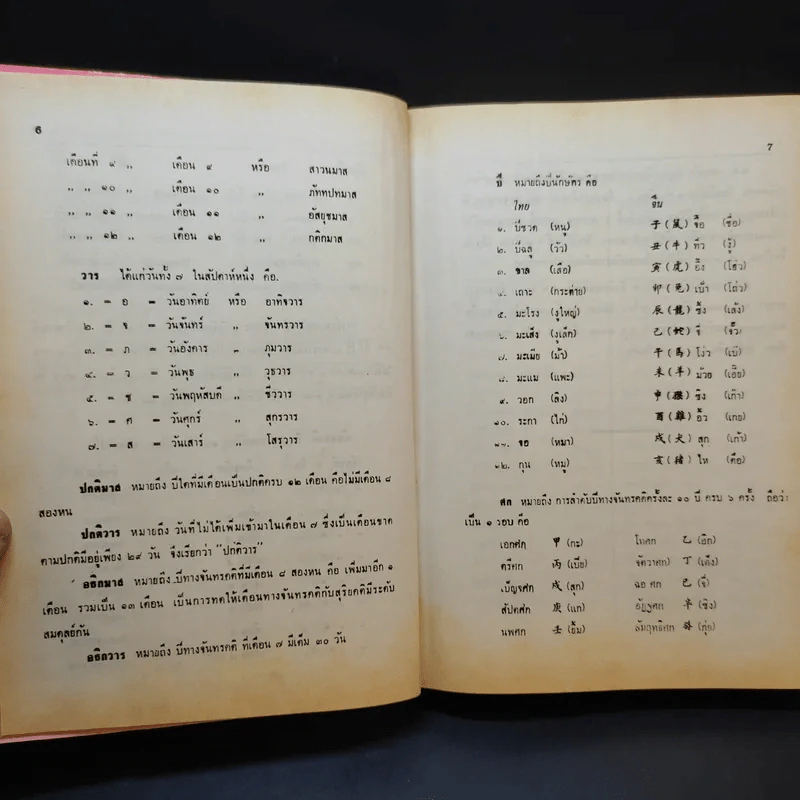 6
เดือนที่ ๙ ,, เดือน ๙ หรือ สาวนมาส
,, ,, ๑๐ ,, เดือน ๑๐ ,, ภัททปทมาส
,, ,, ๑๑ ,, เดือน ๑๑ ,, อัสยุชมาส
,, ,, ๑๒ ,, เดือน ๑๒ ,, กติกมาส
วาร ได้แก่วันทั้ง ๗ ในสัปดาห์หนึ่ง คือ.
๑. = อ = วันอาทิตย์ หรือ อาทิจวาร
๒. = จ = วันจันทร์ ,, จันทรวาร
๓. = ภ = วันอังคาร ,, ภุมวาร
๔. = ว = วันพุธ ,, วุธวาร
๕. = ช = วันพฤหัสบดี ,, ชีววาร
๖. = ศ = วันศุกร์ ,, สุกรวาร
๗. = ส = วันเสาร์ ,, โสรวาร
ปกติมาส หมายถึง ปีใดที่มีเดือนเป็นปกติครบ ๑๒ เดือน คือไม่มีเดือน ๘
สองหน
ปกติวาร หมายถึง วันที่ไม่ได้เพิ่มเข้ามาในเดือน ๗ ซึ่งเป็นเดือนขาด
ตามปกติมีอยู่เพียง ๒๙ วัน จึงเรียกว่า "ปกติวาร"
อธิกมาส หมายถึง ปีทางจันทรคติที่มีเดือน ๘ สองหน คือ เพิ่มมาอีก ๑
เดือน รวมเป็น ๑๓ เดือน เป็นการทดให้เดือนทางจันทรคติกับสุริยคติมีระดับ
สมดุลย์กัน
อธิกวาร หมายถึง ปีทางจันทรคติ ที่เดือน ๗ มีเต็ม ๓๐ วัน
7
ปี หมายถึงปีนักษัตร คือ
ไทย จีน
๑. ปีชวด (หนู) 子 (鼠) จื้อ (ชื่อ)
๒. ปีฉลู (วัว) 丑 (牛) ทิ่ว (งู้)
๓. ขาล (เสือ) 寅 (虎) ยิ้ง (โฮ่ว)
๔. เถาะ (กระต่าย) 卯 (兔) เบ้า (โถ่ว)
๕. มะโรง (งูใหญ่) 辰 (龍) ซิ้ง (เล้ง)
๖. มะเส็ง (งูเล็ก) 己 (蛇) จี๋ (จั๊ว)
๗. มะเมีย (ม้า) 午 (馬) โง่ว (เบ้)
๘. มะแม (แพะ) 未 (羊) ม้วย (เอี๊ย)
๙. วอก (ลิง) 申 (猴) ซิง (เก๊า)
๑๐. ระกา (ไก่) 酉 (雞) อิ้ว (เกย)
๑๑. จอ (หมา) 戌 (犬) สุก (เก้า)
๑๒. กุน (หมู) 亥 (猪) ไห (ตือ)
ศก หมายถึง การลำดับปีทางจันทรคติครั้งละ ๑๐ ปี ครบ ๖ ครั้ง ถือว่า
เป็น ๑ รอบ คือ
เอกศก 甲 (กะ) โทศก 乙 (อิก)
ตรีศก 丙 (เบี้ย) จัตวาศก 丁 (เต็ง)
เบ็ญจศก 戊 (สุก) ฉอ ศก 己 (จี๋)
สัปตศก 庚 (แก) อัฏฐศก 辛 (ซิง)
นพศก 壬 (ยิ้ม) สัมฤทธิศก 癸 (กุ่ย)